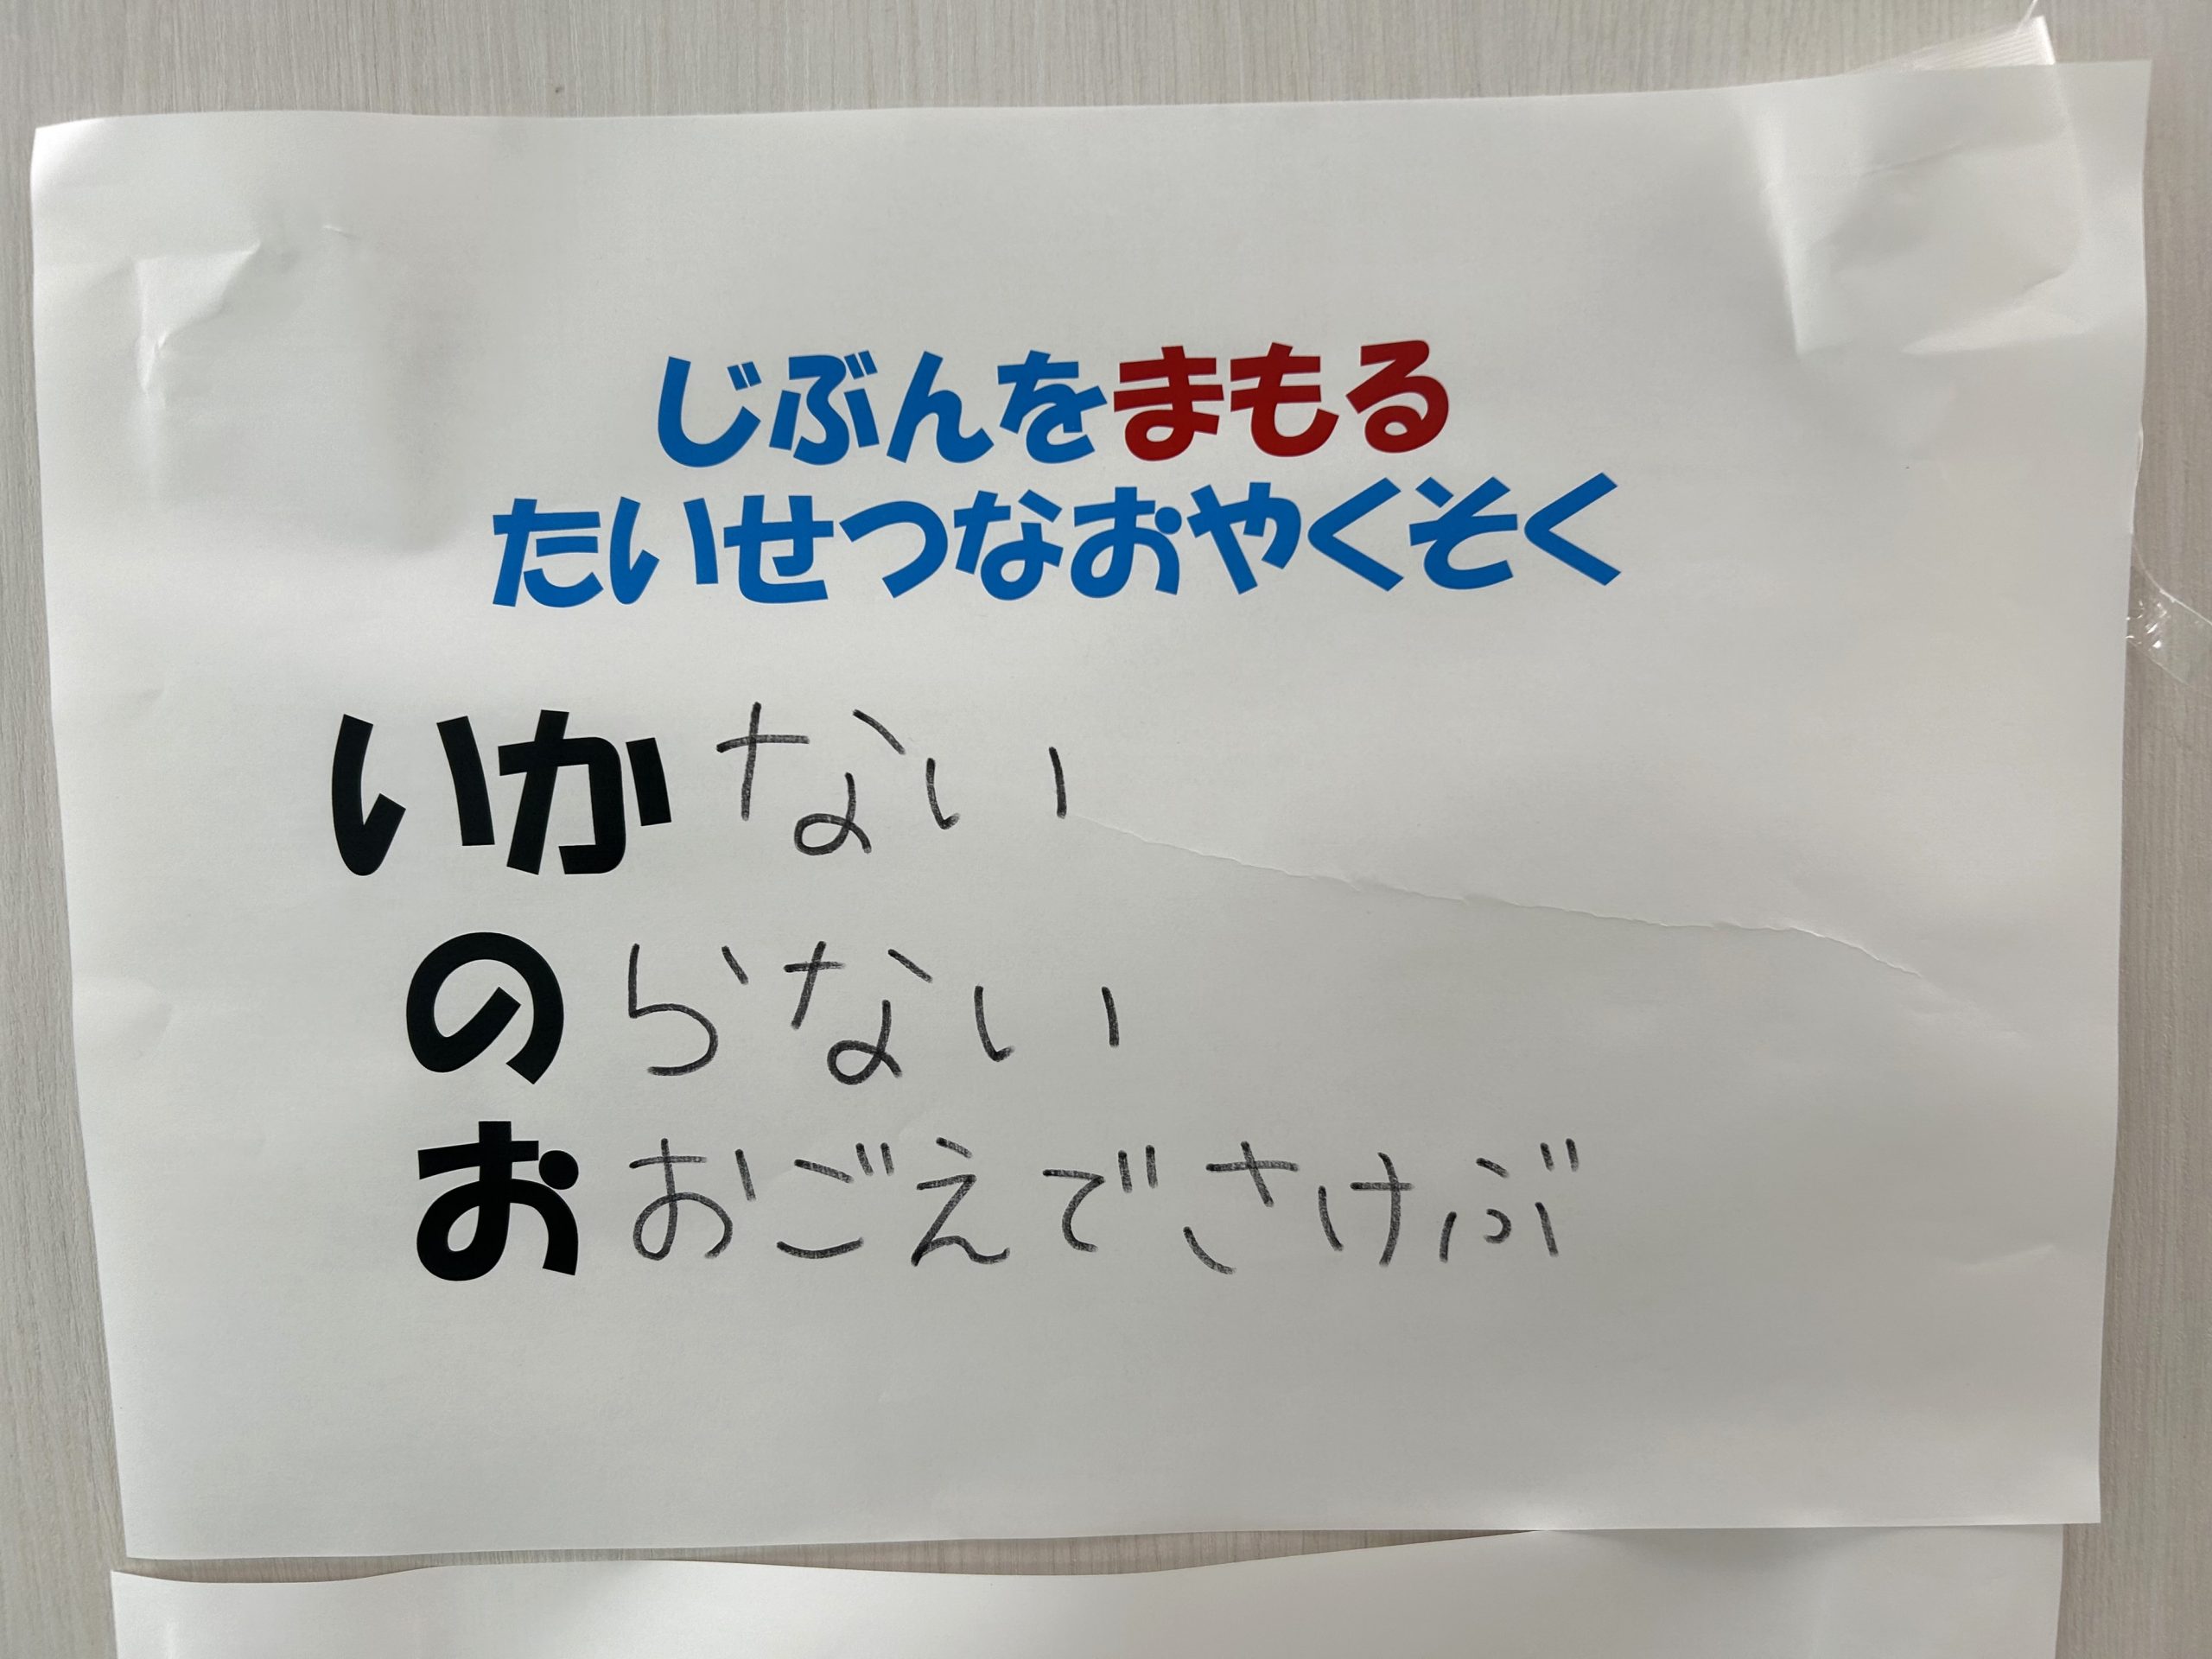 じぶんをまもる
たいせつなおやくそく
いかない
のらない
おおごえでさけぶ